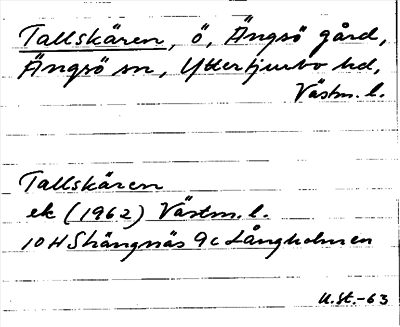 Tallskären, ö, Ängsö gård,
Ängsö sn, Yttertjurbo hd,
Västm. l.
Tallskären
ek (1962) Västm. l.
10H Strängnäs 9c Långholmen
U.St.-63